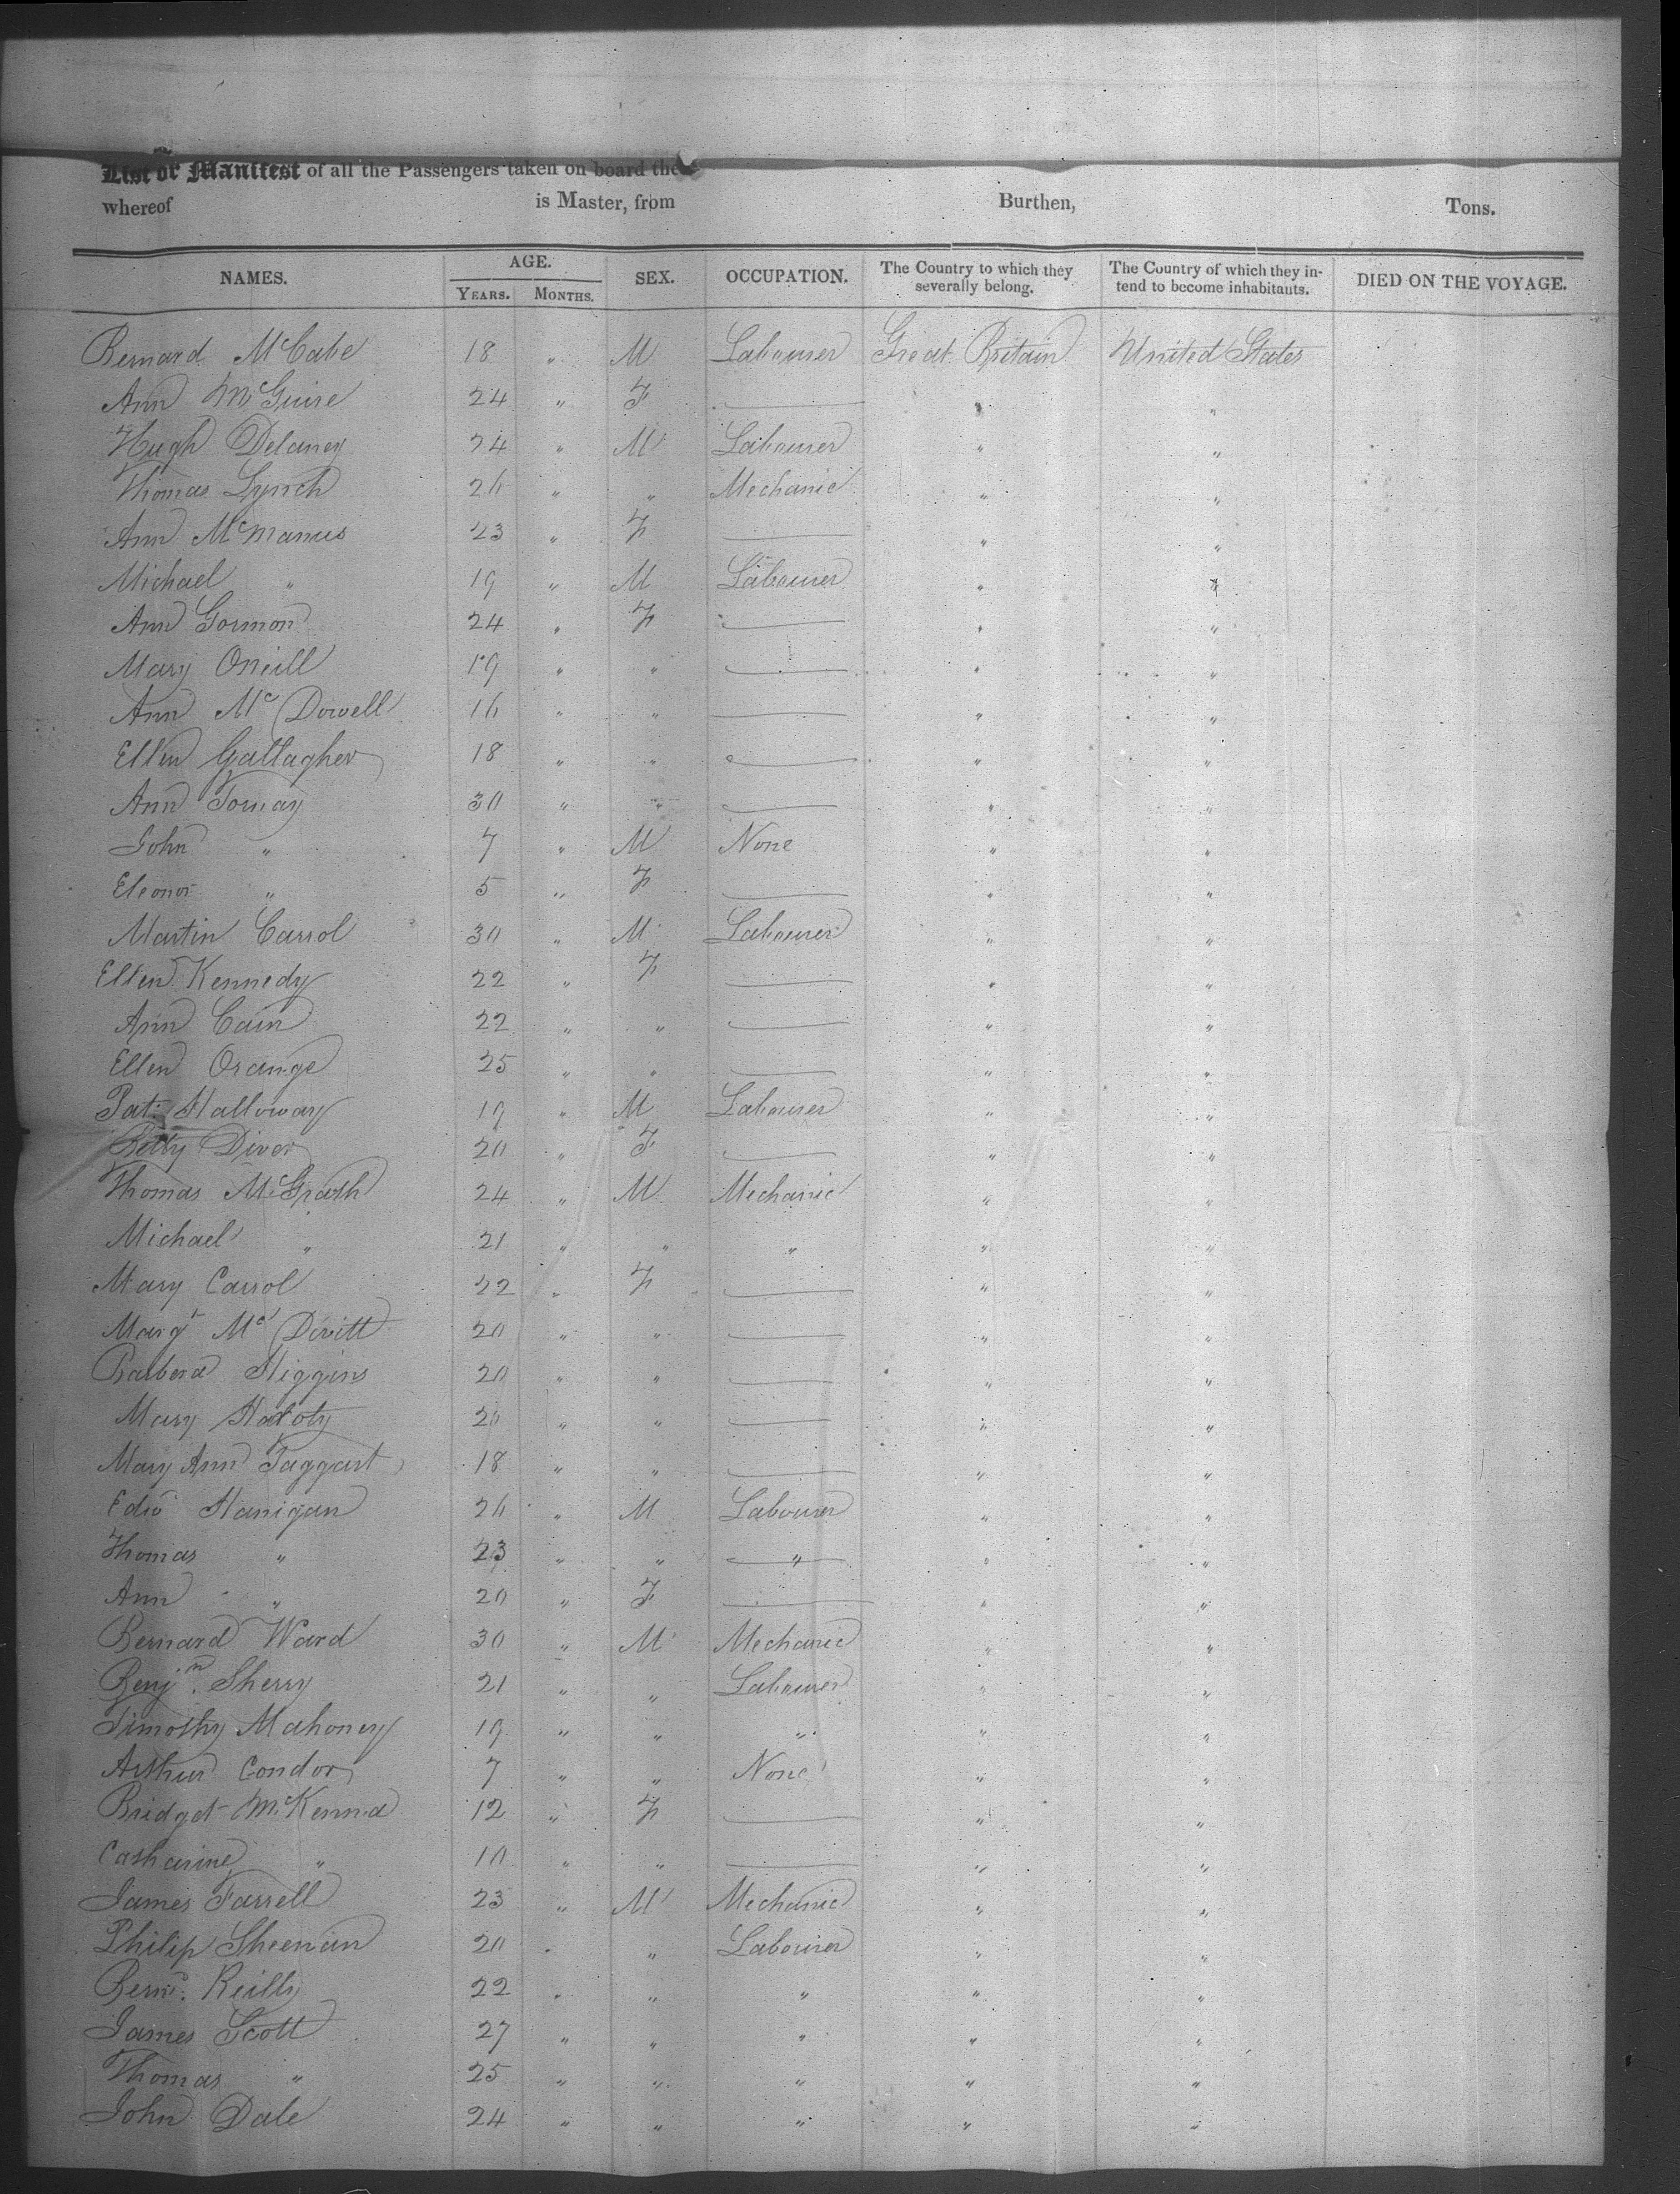 List or Manifest of all the Passengers taken on board the
whereof is Master, from Burthen, Tons.
NAMES. AGE. SEX. OCCUPATION. The Country to which they severally belong. The Country of which they in-tend to become inhabitants. DIED ON THE VOYAGE.
YEARS. MONTHS.
Bernard McCabe 18 " M Labourer Great Britain United States
Ann McGuire 24 " F " "
Hugh Delaney 24 " M Labourer " "
Thomas Lynch 26 " " Mechanic " "
Ann McManus 23 " F " "
Michael " 19 " M Labourer " "
Ann Gormon 24 " F " "
Mary Oneill 19 " " " "
Ann McDowell 16 " " " "
Ellen Gallagher 18 " " " "
Ann 30 " " " "
John " 7 " M None " "
Eleonor " 5 " F " "
Martin Carrol 30 " M Labourer " "
Ellen Kennedy 22 " F " "
Ann Cain 22 " " " "
Ellen Orange 25 " " " "
Pat. Halloway 19 " M Labourer " "
Betty Diver 20 " F " "
Thomas McGrath 24 " M Mechanic " "
Michael " 21 " " " " "
Mary Carrol 22 " F " "
Margt McDevitt 20 " " " "
Barbera Higgins 20 " " " "
Mary 20 " " " "
Mary Ann Taggart 18 " " " "
Edw Hanigan 26 " M Labourer " "
Thomas " 23 " " " " "
Ann " 20 " F " "
Bernard Ward 30 " M Mechanic " "
Benjn. Sherry 21 " " Labourer " "
Timothy Mahoney 19 " " " " "
Arthur Condor 7 " " None " "
Bridget McKenna 12 " F " "
Catharine " 10 " " " "
James Farrell 23 " M Mechanic " "
Philip Sheenan 20 " " Labourer " "
Bernd. Reilly 22 " " " " "
James Scott 27 " " " " "
Thomas " 25 " " " " "
John Dale 24 " " " " "